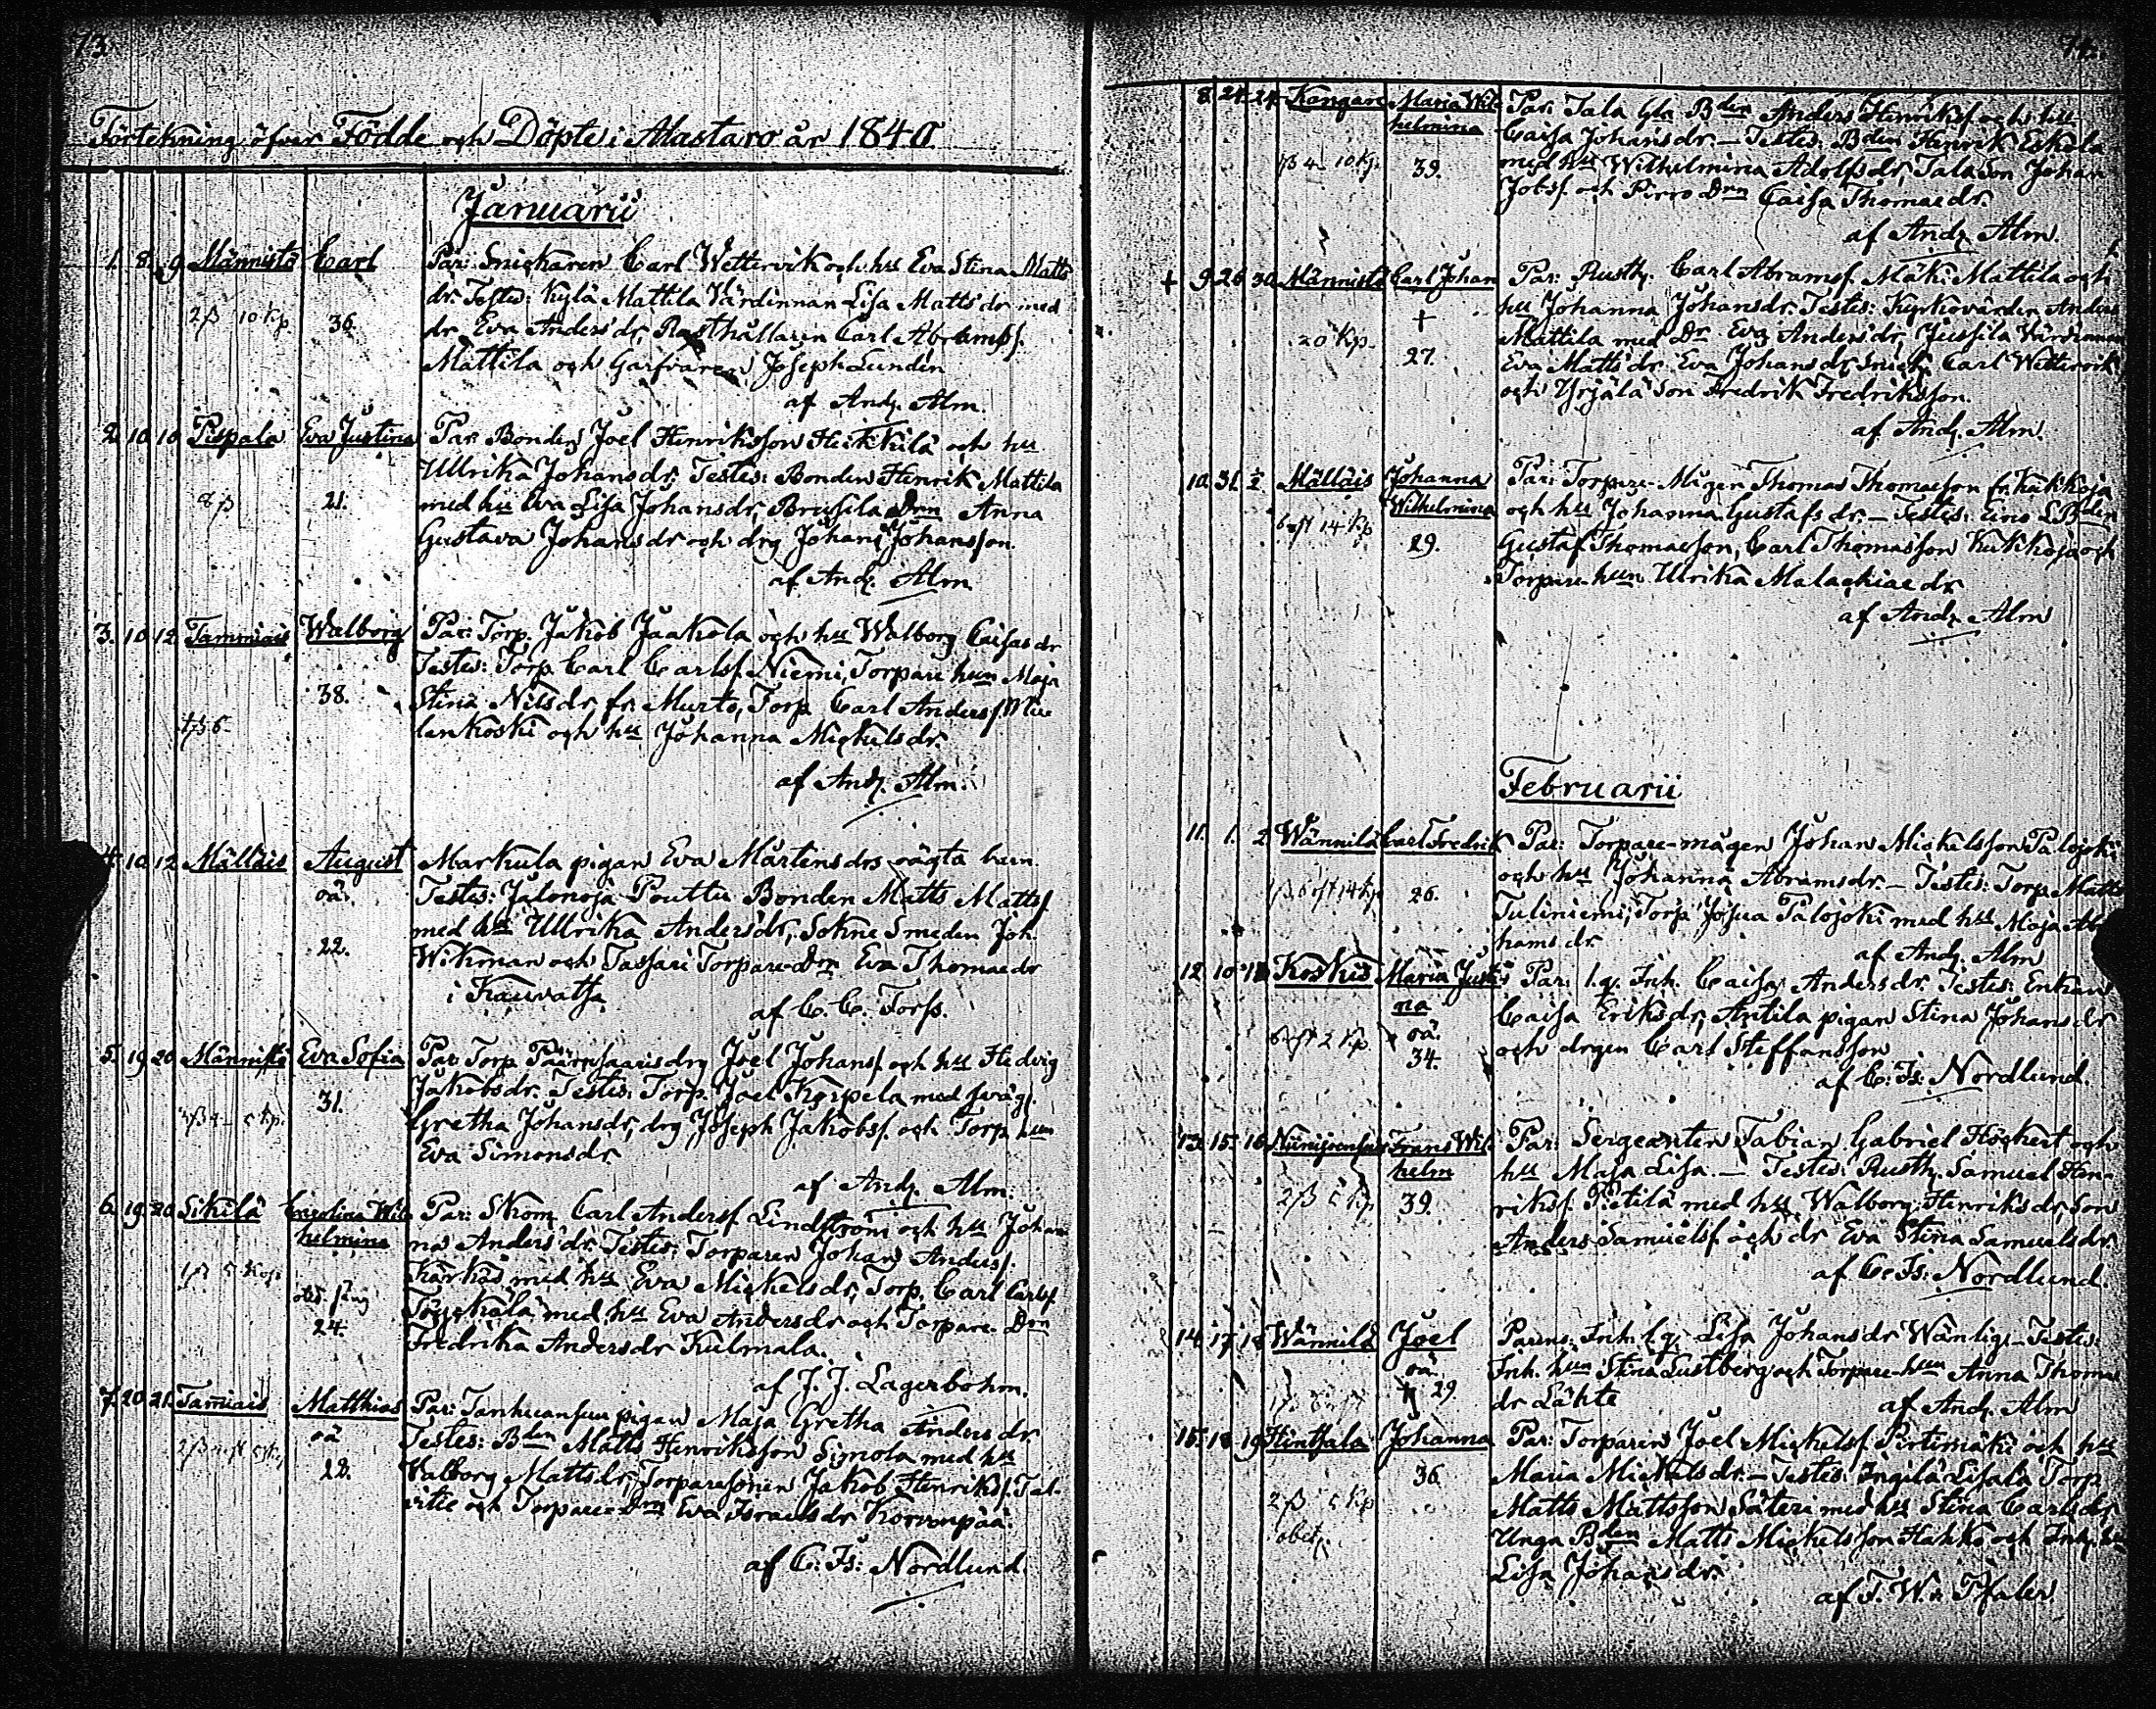 73.
Förtekning öfver Födde och Döpte i Alastaro år 1840
Januarii
1. 8. 9 Männistö Carl Par: Snickaren Carl Wettervik och hu Eva Stina Matts
dr. Testes: Kylä Mattila Värdinnan Lisa Matts dr med
2 β 10 kp. 36. dr Eva Anders dr, Rusthållaren Carl Abramss.
Mattila och Garfvaren Joseph Lundén
af And. Alm.
2. 10 10 Pispala Eva Justina Par: Bonden Joel Henriksson Heikkilä och hu
Ullrika Johansdr; Testes: Bonden Henrik Mattila
21. med hu Eva Lisa Johansdr, Brusila Drn Anna
Gustava Johansdr och drg Johan Johansson.
af And. Alm
3. 10 12 Tammiais Walborg Par: Torp. Jakob Jaakola och hu Walborg Caisas dr
Testes: Torp Carl Carlss. Niemi, Torpare hun Maja
38. Stina Nilsdr fr. Murto, Torp Carl Anderss
lenkoski och hu Johanna Mickelsdr.
af And. Alm.
4. 10 12 Mälläis August Markula pigan Eva Mårtensdrs oägta barn.
oä. Testes: Jalonoja Pouttu Bonden Matts Mattss.
med hu Ullrika Andersdr, Sokne Smeden Joh.
22. Wikman och Tassari Torpare Drn Eva Thomaedr
i Kauvatsa
af C. C. Forss.
5. 19 20 Männistö Eva Sofia Par: Torp drg Joel Johanss. och hu Hedvig
Jakobsdr. Testes: Torp. Joel Korpela med svägs.
31. Gretha Johansdr, drg Joseph Jakobss. och Torp. hun
Eva Simonsdr
af And. Alm.
6. 19. 20 Sikilä Carolina Wil- Par: Skom Carl Anderss. Lindström och hu Johan-
helmina na Anders dr. Testes: Torparen Johan Anderss.
1 β 5 kop. Kärkäs med hu Eva Mickelsdr, Torp. Carl Carlss.
24. med hu Eva Andersdr och Torpare Drn
Fredrika Andersdr Kulmala.
af J. J. Lagerbohm.
7. 20 21. Tam̄iais Matthias Par: Tanhuansuu pigan Maja Gretha Anders dr
oä Testes: Bden Matts Henriksson Simola med hu
28. Valborg Mattsdr, Torparesonen Jakob Henrikss. Tal-
vitie och Torpare Drn Eva Israelsdr Korvenpää.
af C: Fs: Nordlund.
74.
8. 24. 24 Kangare Maria Wil- Par: Tala Gla Bden Anders Henrikss. och hu
helmina Caisa Johansdr. — Testes: Bden Henrik Eskola
39. med hu Wilhelmina Adolfsdr, Tala Son Johan
Jobss. och Pirro Drn Caisa Thomaedr.
af And. Alm.
+ 9. 26 30 Männistö Carl Johan Par: Rusth. Carl Abramss. Mäki Mattila och
+ hu Johanna Johansdr. Testes: Kyrkovärden Anders
20 kp. 27. Mattila med Dr Eva Andersdr, Jussila Värdinnan
Eva Matts dr. Eva Johansdr, Snick. Carl Wettervik
och Yrjälä Son Fredrik Fredriksson.
af And. Alm.
10. 31. 2/2 Mälläis Johanna Par: Torpare-Mågen Thomas Thomaeson fr. Kukkoja
Wilhelmina och hu Johanna Gustafs dr. — Testes:
29. Gustaf Thomaeson, Carl Thomasson Kukkoja och
Torpare-hun Ulrika Malachiaedr
af And. Alm
Februarii
11. 1. 2 Wännilä Carl Fredrik Par: Torpare-mågen Johan Mickelsson Palojoki
26. och hu Johanna Abramsdr. — Testes: Torp Matts
Tuliniemi, Torp. Josua Palojoki med hu Maja Ab
hams dr.
af And. Alm
12. 10. Koskis Maria Justi- Par: l. q. Inh. Caisa Andersdr. Testes:
na Caisa Eriksdr, Antila pigan Stina Johansdr
oä. 34. och drgen Carl Steffansson
af C: Fs: Nordlund.
13. 15. 16 Niinijoensuu Frans Wil- Par: Sergeanten Fabian Gabriel Höckert och
helm hu Maja Lisa. — Testes: Rusth. Samuel Hen-
2 β 5 kp 39. rikss. Pietilä med hu Walborg Henriksdr, Son
Anders Samuelss. och dr Eva Stina Samuelsdr.
af C. Fs: Nordlund
14. 17. 18 Wännilä Joel Parens: Inh. l. q. Lisa Johansdr Wänlig. — Testes:
oä. Inh. hun Stina Lustberg och Torpare-hun Anna Thomae
+ 29. dr Lähte
af And. Alm
15. 18. 19 Hintsala Johanna Par: Torparen Joel Mickelss. Pirtimäki och hu
36. Maria Mickelsdr. — Testes: Torp
2 β 5 kp Matts Mattsson Säteri med hu Stina Carlsdr,
obet. Unga Bden Matts Mickelsson Hakko och
Lisa Johansdr.
af F. W. Pfaler